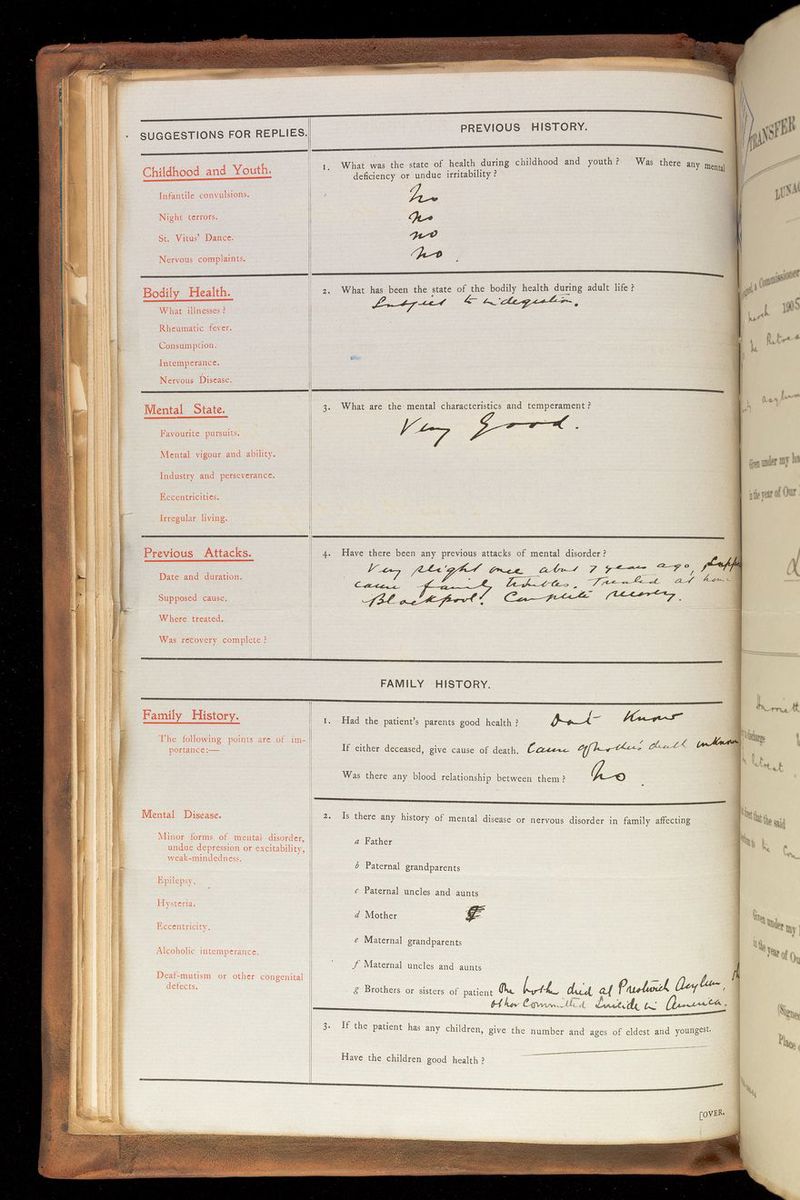 SUGGESTIONS FOR REPLIES.
PREVIOUS HISTORY.
Childhood and Youth.
Infantile convulsions.
Night terrors.
St. Vitus' Dance.
Nervous complaints.
1. What was the state of health during childhood and youth? Was there any mental
deficiency or undue irritability?
No
No
No
No
Bodily Health.
What illnesses?
Rheumatic fever.
Consumption.
Intemperance.
Nervous Disease.
2. What has been the state of the bodily health during adult life?
Subject to indigestion.
Mental State.
Favourite pursuits.
Mental vigour and ability.
Industry and perseverance.
Eccentricities.
Irregular living.
3. What are the mental characteristics and temperament?
Very good.
Previous Attacks.
Date and duration.
Supposed cause.
Where treated.
Was recovery complete?
4. Have there been any previous attacks of mental disorder?
Very slight once about 7 years ago,
cause family troubles. Treated at home
Blackpool. Complete recovery.
FAMILY HISTORY.
Family History.
The following points are of im-
portance:—
1. Had the patient's parents good health?
Don't Know
If either deceased, give cause of death. Cause of mother's death unknown
Was there any blood relationship between them? No
Mental Disease.
Minor forms of mental disorder,
undue depression or excitability,
weak-mindedness.
Epilepsy.
Hysteria.
Eccentricity.
Alcoholic intemperance.
Deaf-mutism or other congenital
defects.
2. Is there any history of mental disease or nervous disorder in family affecting
a Father
b Paternal grandparents
c Paternal uncles and aunts
d Mother
e Maternal grandparents
f Maternal uncles and aunts
g Brothers or sisters of patient One broth died at Prestwich Asylum,
other Committed Suicide in America.
3. If the patient has any children, give the number and ages of eldest and youngest.
Have the children good health?
[OVER.
TRANSFER
LUNA
Commissioner
1905
Given under my
in the year of Our
discharge
that the said
Given under my
in the year of Ou
(Signed
Place